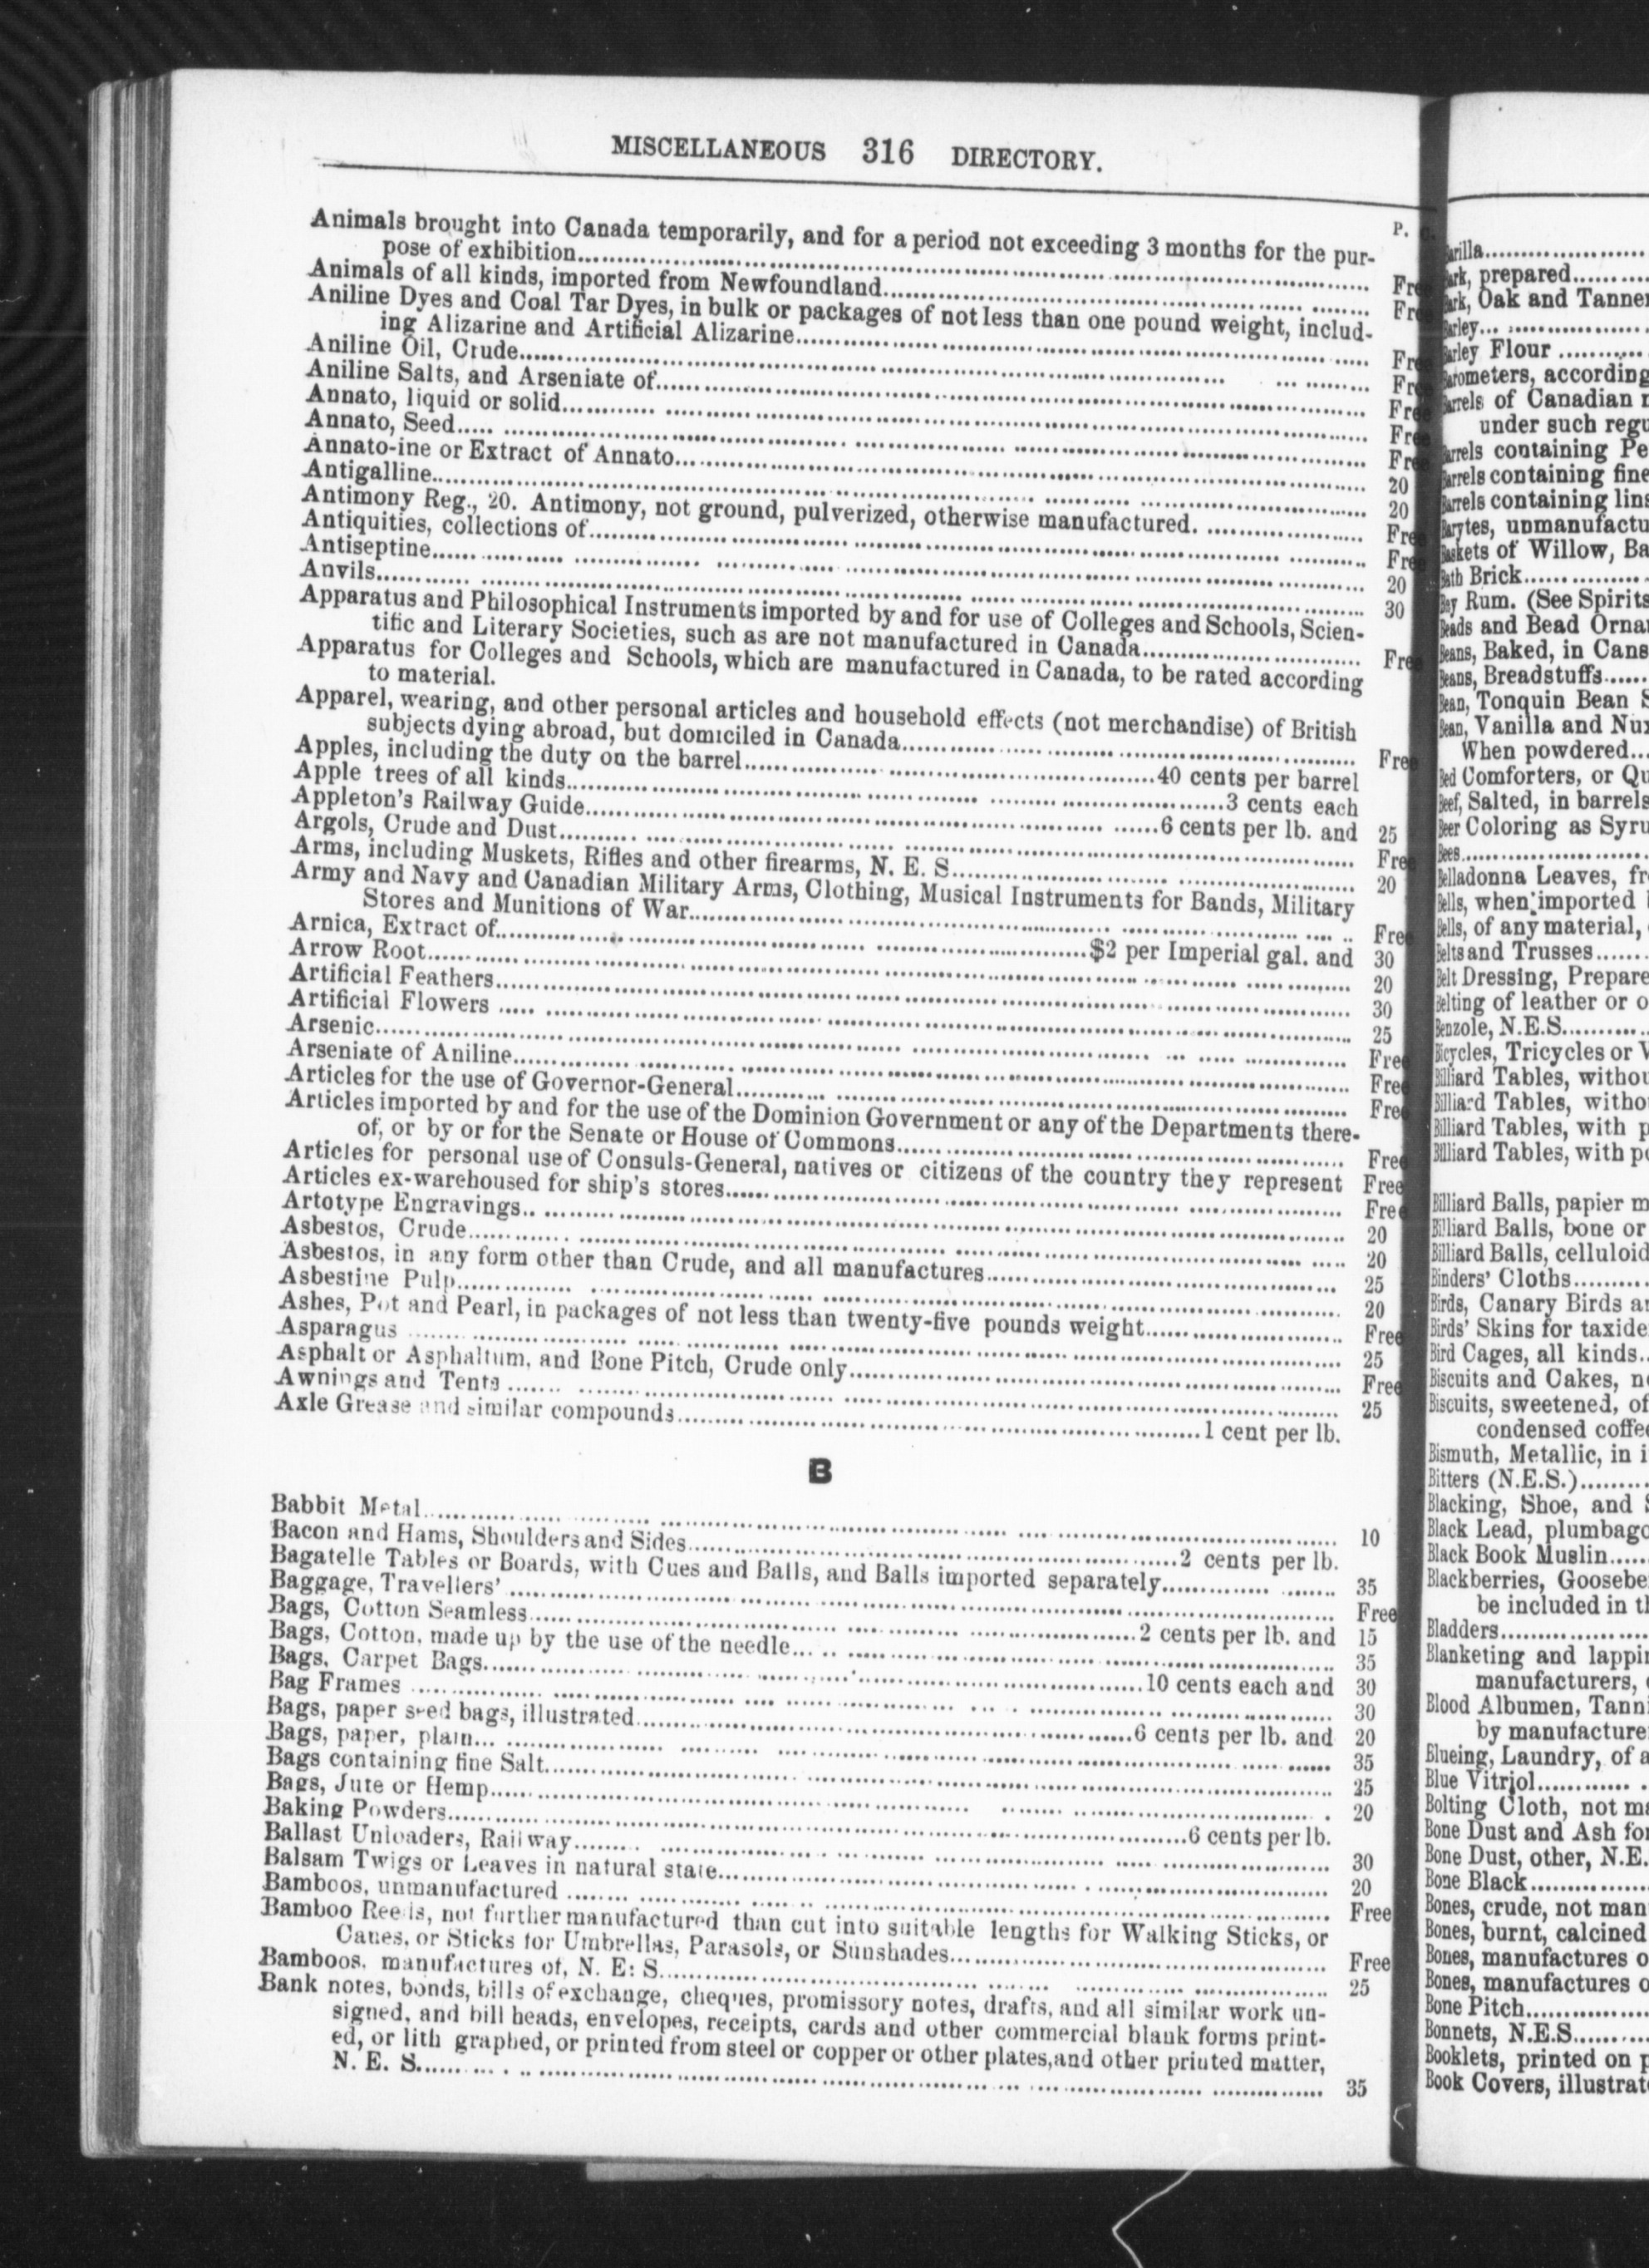 MISCELLANEOUS 316 DIRECTORY.
P. C.
Animals brought into Canada temporarily, and for a period not exceeding 3 months for the pur-
pose of exhibition.......... Free
Animals of all kinds, imported from Newfoundland.......... Free
Aniline Dyes and Coal Tar Dyes, in bulk or packages of not less than one pound weight, includ-
ing Alizarine and Artificial Alizarine.......... Free
Aniline Oil, Crude.......... Free
Aniline Salts, and Arseniate of.......... Free
Annato, liquid or solid.......... Free
Annato, Seed.......... Free
Annato-ine or Extract of Annato.......... 20
Antigalline.......... 20
Antimony Reg., 20. Antimony, not ground, pulverized, otherwise manufactured. .......... Free
Antiquities, collections of.......... Free
Antiseptine.......... 20
Anvils.......... 30
Apparatus and Philosophical Instruments imported by and for use of Colleges and Schools, Scien-
tific and Literary Societies, such as are not manufactured in Canada.......... Free
Apparatus for Colleges and Schools, which are manufactured in Canada, to be rated according
to material.
Apparel, wearing, and other personal articles and household effects (not merchandise) of British
subjects dying abroad, but domiciled in Canada.......... Free
Apples, including the duty on the barrel..........40 cents per barrel
Apple trees of all kinds..........3 cents each
Appleton's Railway Guide..........6 cents per lb. and 25
Argols, Crude and Dust.......... Free
Arms, including Muskets, Rifles and other firearms, N. E. S.......... 20
Army and Navy and Canadian Military Arms, Clothing, Musical Instruments for Bands, Military
Stores and Munitions of War.......... Free
Arnica, Extract of..........$2 per Imperial gal. and 30
Arrow Root.......... 20
Artificial Feathers.......... 30
Artificial Flowers .......... 25
Arsenic.......... Free
Arseniate of Aniline.......... Free
Articles for the use of Governor-General.......... Free
Articles imported by and for the use of the Dominion Government or any of the Departments there-
of, or by or for the Senate or House of Commons.......... Free
Articles for personal use of Consuls-General, natives or citizens of the country they represent Free
Articles ex-warehoused for ship's stores.......... Free
Artotype Engravings.......... 20
Asbestos, Crude.......... 20
Asbestos, in any form other than Crude, and all manufactures.......... 25
Asbestine Pulp.......... 20
Ashes, Pot and Pearl, in packages of not less than twenty-five pounds weight.......... Free
Asparagus .......... 25
Asphalt or Asphaltum, and Bone Pitch, Crude only.......... Free
Awnings and Tents .......... 25
Axle Grease and similar compounds..........1 cent per lb.
B
Babbit Metal.......... 10
Bacon and Hams, Shoulders and Sides..........2 cents per lb.
Bagatelle Tables or Boards, with Cues and Balls, and Balls imported separately.......... 35
Baggage, Travellers' .......... Free
Bags, Cotton Seamless..........2 cents per lb. and 15
Bags, Cotton, made up by the use of the needle.......... 35
Bags, Carpet Bags..........10 cents each and 30
Bag Frames .......... 30
Bags, paper seed bags, illustrated..........6 cents per lb. and 20
Bags, paper, plain.......... 35
Bags containing fine Salt.......... 25
Bags, Jute or Hemp.......... 20
Baking Powders..........6 cents per lb.
Ballast Unloaders, Railway.......... 30
Balsam Twigs or Leaves in natural state.......... 20
Bamboos, unmanufactured .......... Free
Bamboo Reeds, not further manufactured than cut into suitable lengths for Walking Sticks, or
Canes, or Sticks for Umbrellas, Parasols, or Sunshades.......... Free
Bamboos, manufactures of, N. E: S.......... 25
Bank notes, bonds, bills of exchange, cheques, promissory notes, drafts, and all similar work un-
signed, and bill heads, envelopes, receipts, cards and other commercial blank forms print-
ed, or lith graphed, or printed from steel or copper or other plates, and other printed matter,
N. E. S.......... 35
prepared..........
Oak and
Flour ..........
according
of Canadian
under such
containing
containing fine
containing
of Willow,
Brick..........
Rum. (See Spirits
and Bead
Baked, in Cans
Breadstuffs......
Tonquin Bean
Vanilla and
When powdered...
Comforters, or
Salted, in barrels
Coloring as
Leaves,
when imported
of any material,
and Trusses.......
Dressing,
of leather or
N.E.S..........
Tricycles or
Billiard Tables,
Billiard Tables,
Billiard Tables, with
Billiard Tables, with
Billiard Balls, papier
Billiard Balls, bone or
Billiard Balls, celluloid
Binders' Cloths..........
Birds, Canary Birds
Birds' Skins for
Bird Cages, all kinds..
Biscuits and Cakes,
Biscuits, sweetened, of
condensed
Bismuth, Metallic, in
Bitters (N.E.S.)..........
Blacking, Shoe, and
Black Lead, plumbago
Black Book Muslin......
Blackberries,
be included in
Bladders..........
Blanketing and
manufacturers,
Blood Albumen,
by
Blueing, Laundry, of
Blue Vitriol..........
Bolting Cloth, not
Bone Dust and Ash for
Bone Dust, other, N.E.
Bone Black..........
Bones, crude, not
Bones, burnt, calcined
Bones, manufactures
Bones, manufactures
Bone Pitch..........
Bonnets, N.E.S..........
Booklets, printed on
Book Covers,